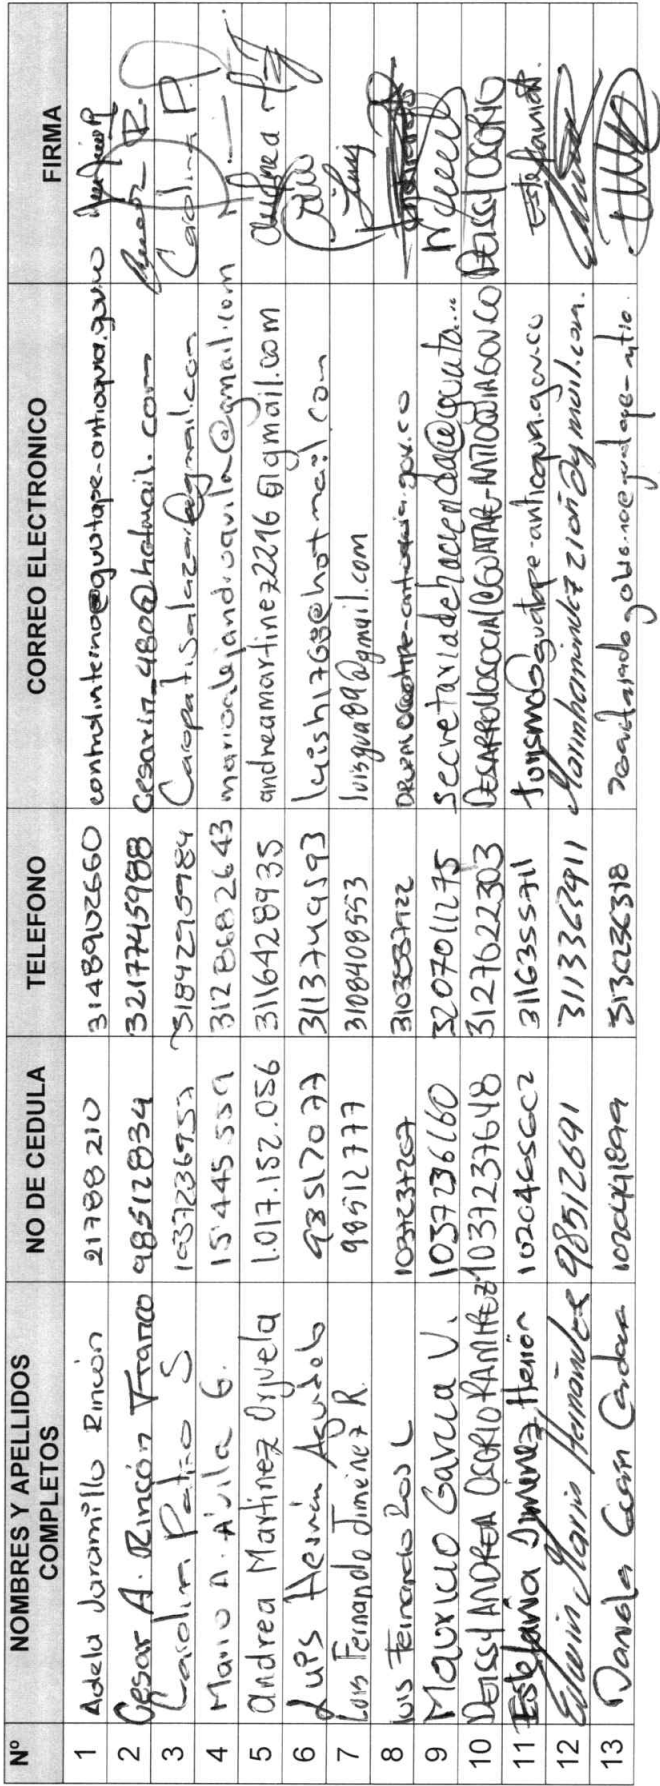 Nº NOMBRES Y APELLIDOS COMPLETOS NO DE CEDULA TELEFONO CORREO ELECTRONICO FIRMA
1 Adela Jaramillo Rincón 21788210 3148902660 controlinterno@guatape-antioquia.gov.co
2 Cesar A. Rincón Franco 98512834 3217745988 Cesarin_480@hotmail.com Cesar R.
3 Carolina Patiño S 1037236957 3184295984 Caropatisalazar@gmail.com Carolina P.
4 Mario A. Avila G. 15445559 3128682643 marioalejandroavila@gmail.com
5 Andrea Martinez Orjuela 1.017.152.056 3116428935 andreamartinez2216@gmail.com Andrea
6 Luis Hernán Agudelo 98517077 3113749593 luish1768@hotmail.com
7 Luis Fernando Jiménez R. 98512777 3108408553 luisgua89@gmail.com Luis
8 Luis Fernando L 1037237267
9 Mauricio Garcia V. 1037236160 3207011275 secretariadehacienda@guata...
10 DEISSY ANDREA OSORIO RAMIREZ 1037237648 3127622303 DESARROLLOSOCIAL@GUATAPE-ANTIOQUIA.GOV.CO DEISSY OSORIO
11 Estefania Jiménez Henión 3116355711 turismo@guatape-antioquia.gov.co Estefania
12 Edwin Marin Hernández 98512691 3113363911
13 Daniela Cardona 3136236318